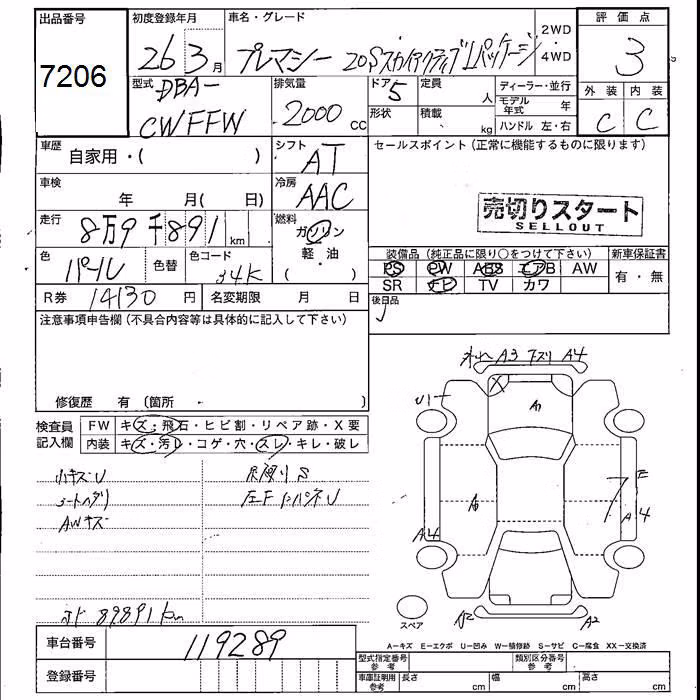 出品番号 初度登録年月 車名・グレード 2WD 評価点
7206 26 3月 プレマシー 20Sスカイアクティブ Lパッケージ ・4WD 3
型式 DBA- 排気量 ドア 5 定員 人 ディーラー・並行 外装 内装
モデル年式 年
CWFFW 2000 cc 形状 積載 kg ハンドル 左・右 C C
車歴 自家用・( ) シフト AT セールスポイント(正常に機能するものに限ります)
車検 年 月( 日) 冷房 AAC
売切りスタート
SELLOUT
走行 8万9千891km 燃料 ガソリン
軽・油
( )
色 パール 色替 色コード 34K
装備品(純正品に限り○をつけて下さい) 新車保証書
PS PW ABS エアB AW 有・無
SR ナビ TV カワ
R券 14130円 名変期限 月 日 後日品
注意事項申告欄(不具合内容等は具体的に記入して下さい)
修復歴 有(箇所 )
検査員記入欄 FW キズ・飛石・ヒビ割・リペア跡・X要
内装 キズ・汚レ・コゲ・穴・スレ・キレ・破レ
A3 A4
U1
X A1
E
A
A4 A4
A2
小キズU
シートヘタリ
AWキズ
89891km
スペア
A-キズ E-エクボ U-凹み W-補修跡 S-サビ C-腐食 XX-交換済
車台番号 119289
登録番号
型式指定番号 参考 類別区分番号 参考
車庫証明用 参考 長さ cm 幅 cm 高さ cm